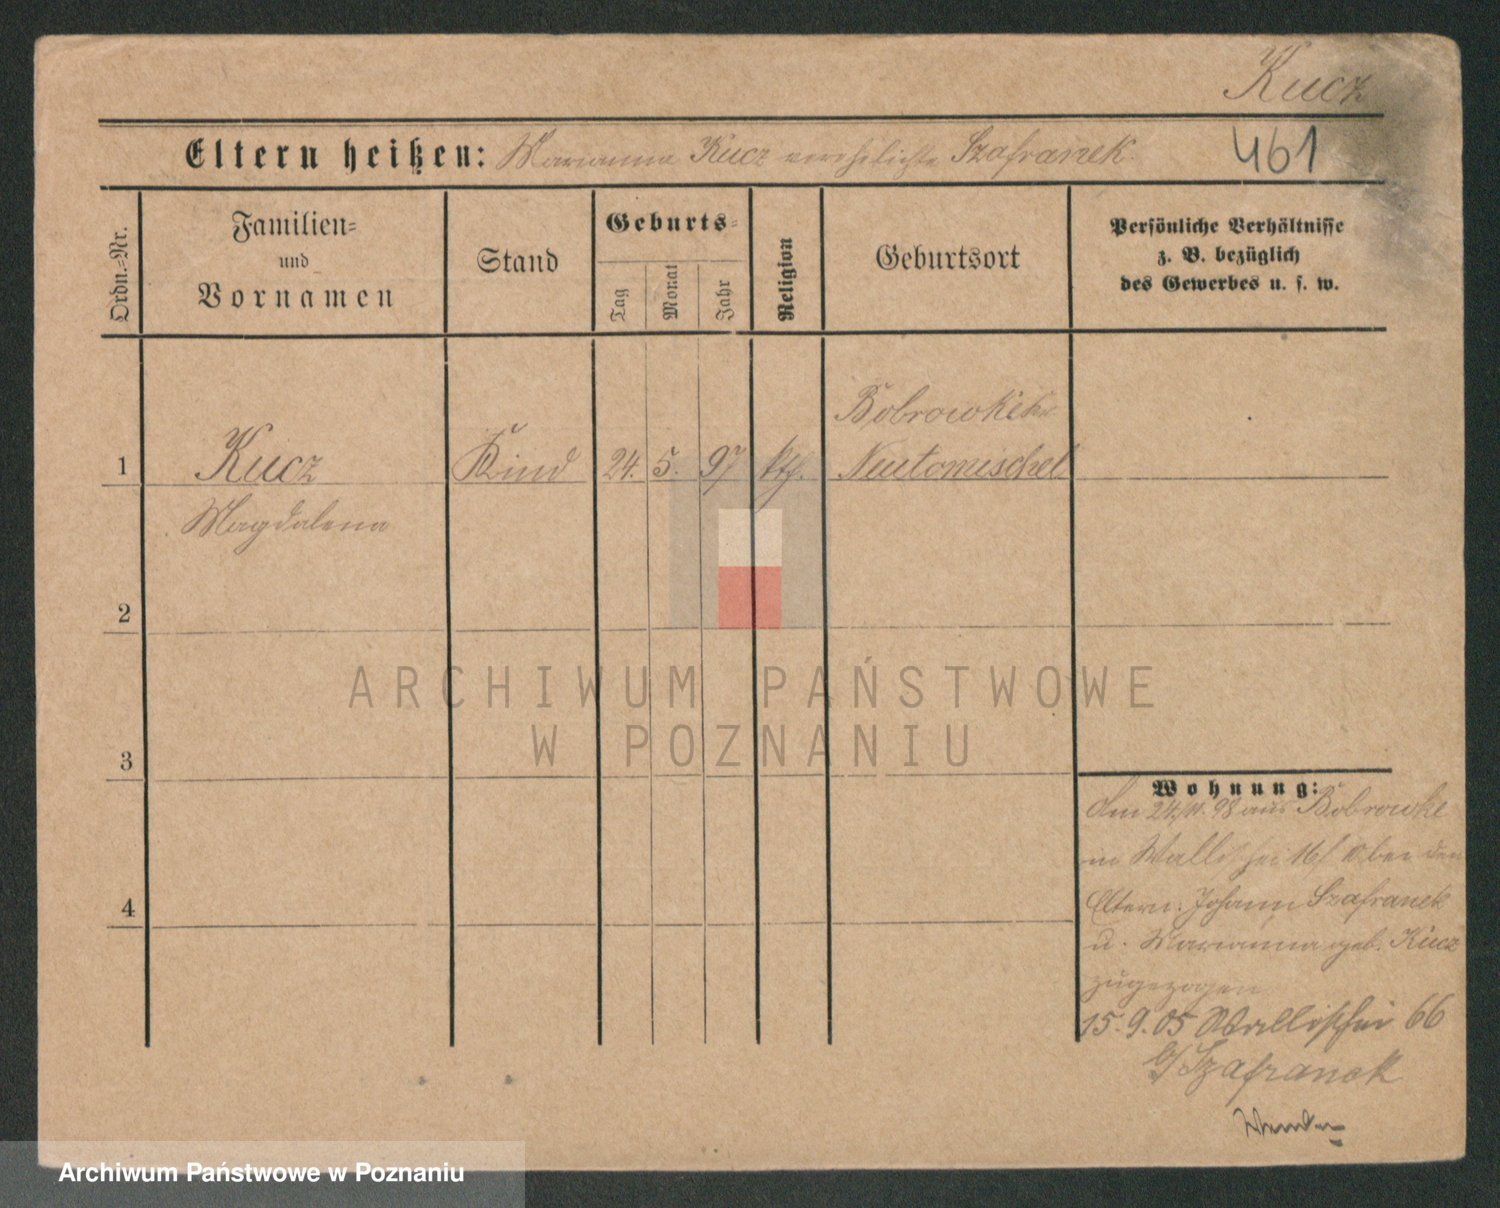 Kucz
461
Eltern heißen: Marianna Kucz verehelichte Szafranek.
Ordn.-Nr.
Familien-
und
Vornamen
Stand
Geburts-
Tag
Monat
Jahr
Religion
Geburtsort
Persönliche Verhältnisse
z. B. bezüglich
des Gewerbes u. s. w.
Bobrowke
1 Kucz Kind 24. 5. 97 kth. Neutomischel
Magdalena
2
3
4
ARCHIWUM PAŃSTWOWE
W POZNANIU
Wohnung:
Am 24/11. 98 aus Bobrowke
in Wallischei 16/ bei den
Eltern: Johann Szafranek
u. Marianna geb. Kucz
zugezogen
15. 9. 05 Wallischei 66
b/ Szafranek
Archiwum Państwowe w Poznaniu